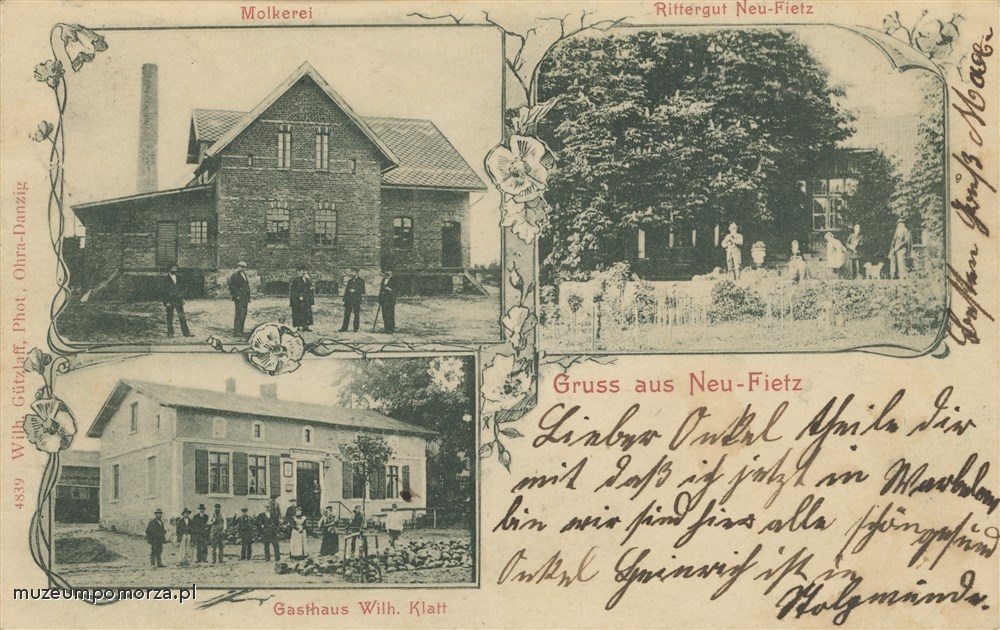 Molkerei
Rittergut Neu-Fietz
4839 Wilh. Gützlaff, Phot., Ohra-Danzig
Gruss aus Neu-Fietz
Lieber Onkel theile dir
mit daß ich jetzt in
bin wir sind hier alle schön gesund
Onkel Heinrich ist in
Stolpmünde.
Besten Gruß
Gasthaus Wilh. Klatt
muzeumpomorza.pl